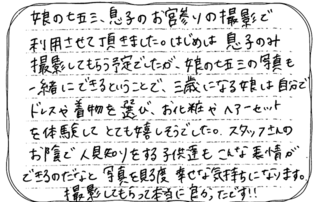 娘の七五三、息子のお宮参りの撮影で
利用させて頂きました。はじめは息子のみ
撮影してもらう予定でしたが、娘の七五三の写真も
一緒にできるということで、三歳になる娘は自分で
ドレスや着物を選び、お化粧やヘアーセット
を体験してとても嬉しそうでした。スタッフさんの
お陰で人見知りをする子供達もこんな表情が
できるのだなと写真を見る度幸せな気持ちになります。
撮影してもらって本当に良かったです!!